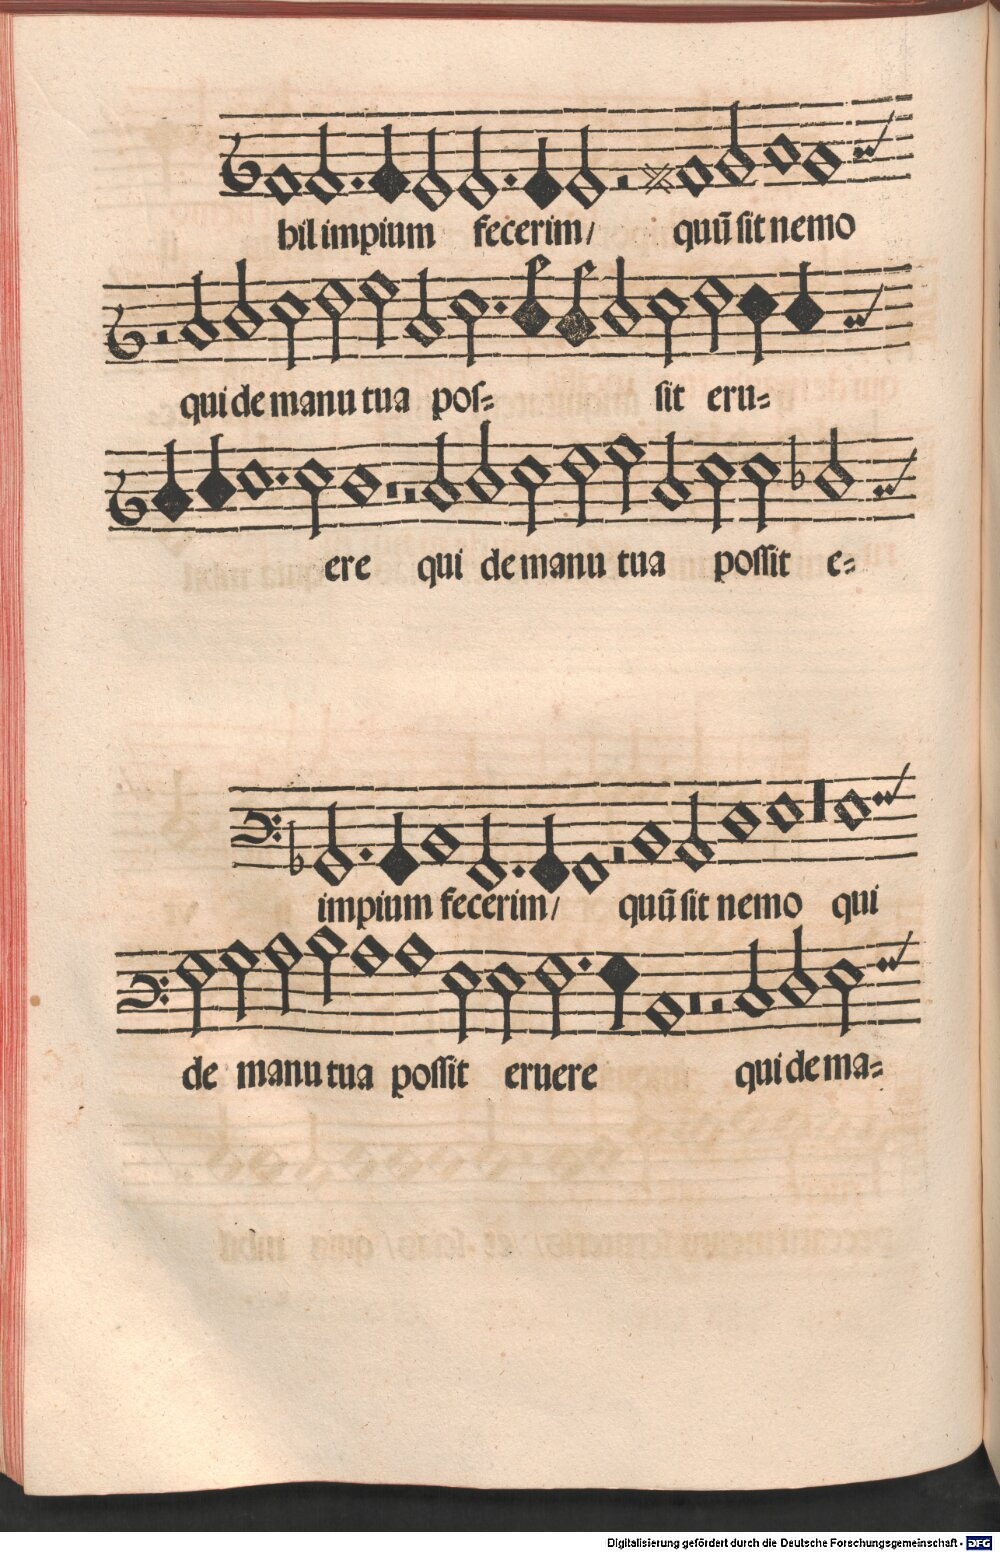 bil impium fecerim/ quū sit nemo
qui de manu tua pos= sit eru=
ere qui de manu tua possit e=
impium fecerim/ quū sit nemo qui
de manu tua possit eruere qui de ma=
Digitalisierung gefördert durch die Deutsche Forschungsgemeinschaft - DFG